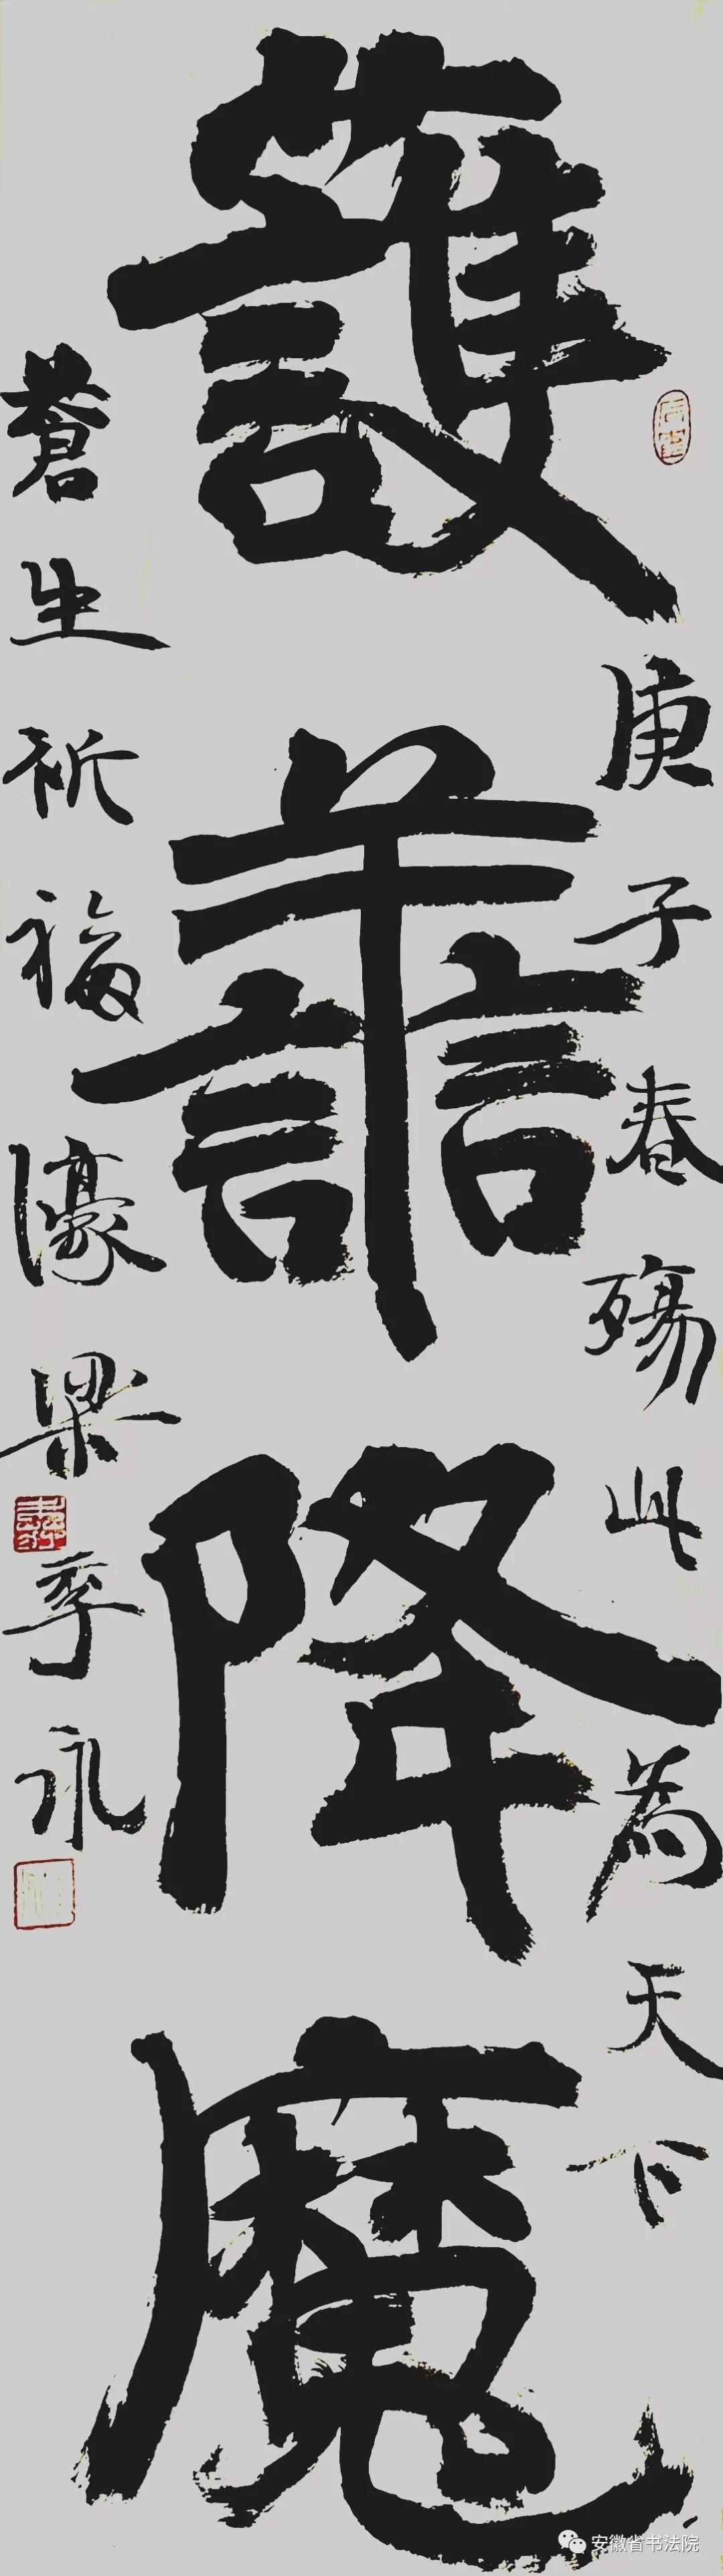 護譱降魔
庚子春殤此為天下
蒼生祈福濠梁季永
安徽省书法院